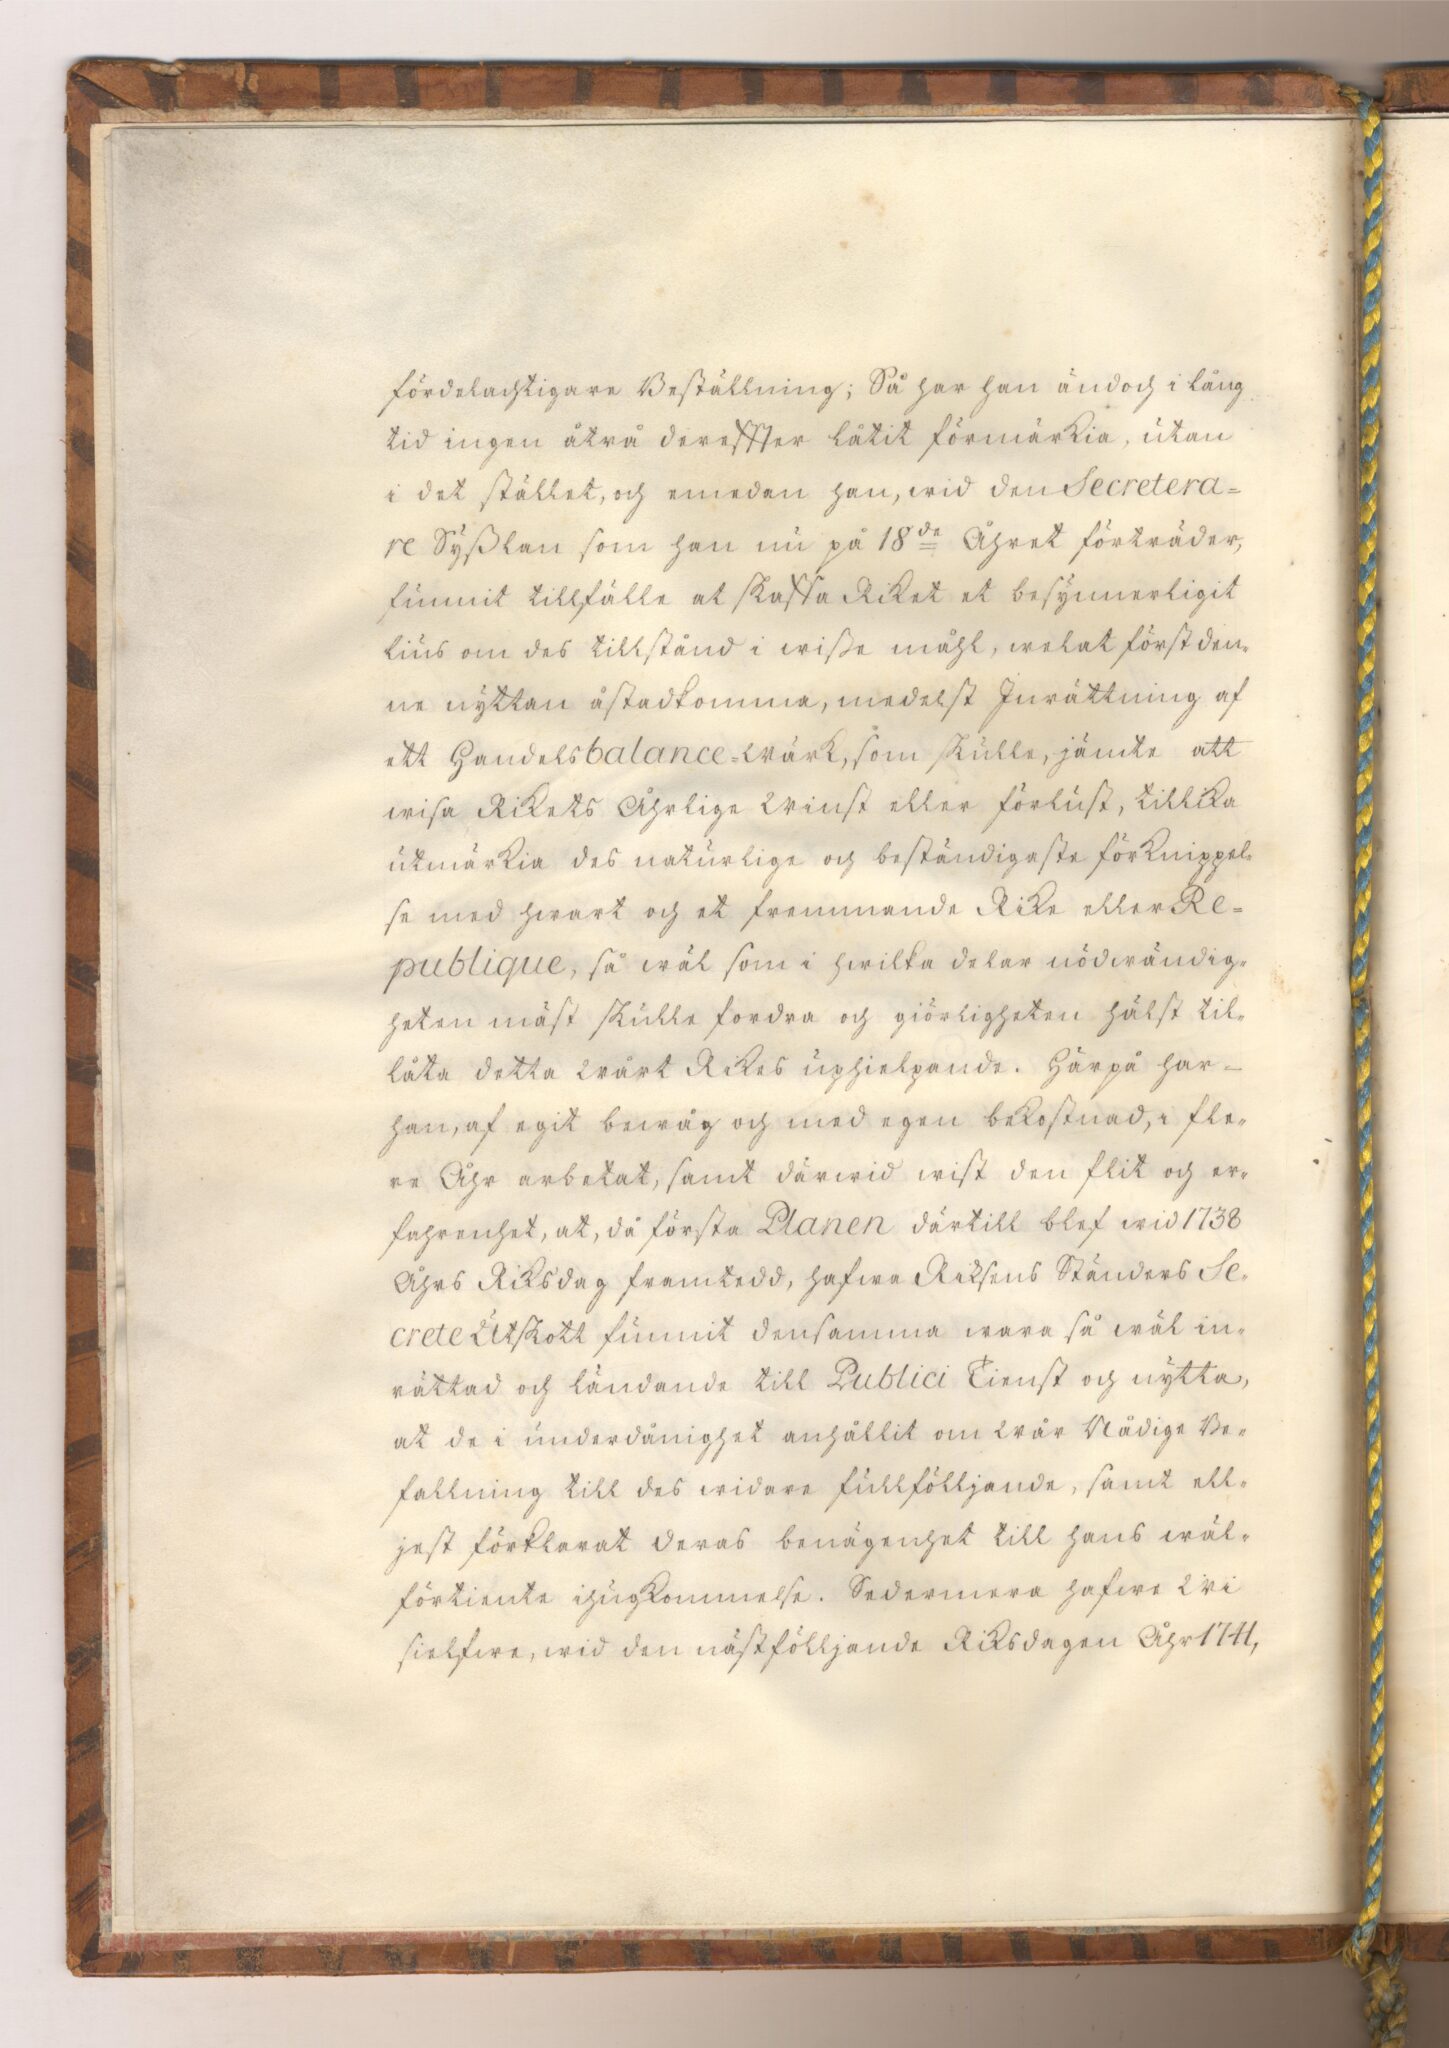 fördelachtigare Beställning; Så har han ändoch i lång
tid ingen åtrå derefter låtit förmärkia, utan
i det stället, och emedan han, wid den Secretera=
re Sysslan som han nu på 18de Åhret förträder,
funnit tillfälle at skaffa Riket et besynnerligit
lius om des tillstånd i wisse måhl, welat först den=
ne nyttan åstadkomma, medelst Inrättning af
ett Handelsbalance=Wärk, som skulle, jämte att
wisa Rikets Åhrlige Winst eller förlust, tillika
utmärkia des naturlige och beständigaste förknippel=
se med hwart och et fremmande Rike eller Re=
publique, så wäl som i hwilka delar nödwändig=
heten mäst skulle fordra och giörligheten hälst til=
låta detta Wårt Rikes uphielpande. Härpå har
han, af egit bewåg och med egen bekostnad, i fle=
re Åhr arbetat, samt därwid wist den flit och er=
fahrenhet, at, då första Planen därtill blef wid 1738
Åhrs Riksdag framtedd, hafwe Riksens Ständers Se=
crete Utskott funnit densamma wara så wäl in=
rättad och ländande till Publici Tienst och nytta,
at de i underdånighet anhållit om Wår Nådige Be=
fallning till des widare fullfölljande, samt ell=
jest förklarat deras benägenhet till hans wäl=
förtiente ihugkommelse. Sedermera hafwe Wi
sielfwe, wid den nästfölljande Riksdagen Åhr 1741,